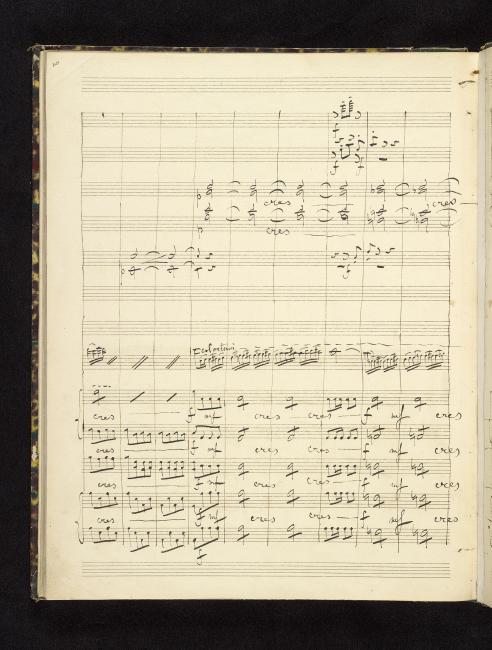 f
f
f f
cres cres
p
cres
p
f
cres f mf cres cres f mf cres
cres f mf cres cres f mf cres
cres f m cres cres f mf cres
cres f mf cres cres f mf cres
f